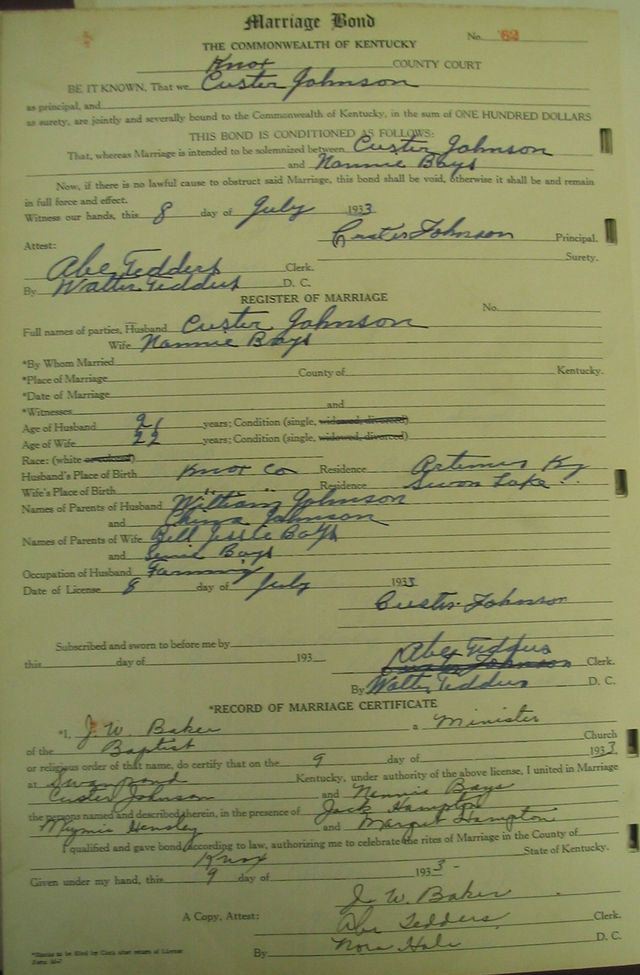 Marriage Bond
No. 62
THE COMMONWEALTH OF KENTUCKY
Knox COUNTY COURT
BE IT KNOWN, That we Custer Johnson
as principal, and
as surety, are jointly and severally bound to the Commonwealth of Kentucky, in the sum of ONE HUNDRED DOLLARS
THIS BOND IS CONDITIONED AS FOLLOWS:
That, whereas Marriage is intended to be solemnized between Custer Johnson
and Nannie Bays
Now, if there is no lawful cause to obstruct said Marriage, this bond shall be void, otherwise it shall be and remain
in full force and effect.
Witness our hands, this 8 day of July 1933
Custer Johnson Principal.
Attest: Surety.
Abe Tedders Clerk.
By Walter Tedders D. C.
REGISTER OF MARRIAGE
No.
Full names of parties, Husband Custer Johnson
Wife Nannie Bays
*By Whom Married
*Place of Marriage County of Kentucky.
*Date of Marriage
*Witnesses and
Age of Husband 21 years; Condition (single, widowed, divorced)
Age of Wife 22 years; Condition (single, widowed, divorced)
Race: (white or colored)
Husband's Place of Birth Knox Co Residence Artemus Ky
Wife's Place of Birth " " Residence Swon Lake.
Names of Parents of Husband William Johnson
and Johnson
Names of Parents of Wife Bill Jessie Bays
and Bays
Occupation of Husband Farming
Date of License 8 day of July 1933
Custer Johnson
Subscribed and sworn to before me by
Abe Tedders
this day of 193 Custer Johnson Clerk.
By Walter Tedders D. C.
*RECORD OF MARRIAGE CERTIFICATE
*I, J. W. Baker a Minister
of the Baptist Church
or religious order of that name, do certify that on the 9 day of 1933
at Swanpond Kentucky, under authority of the above license, I united in Marriage
Custer Johnson and Nannie Bays
the persons named and described therein, in the presence of Jack Hampton
Hensley and Margret Hampton
I qualified and gave bond according to law, authorizing me to celebrate the rites of Marriage in the County of
Knox State of Kentucky.
Given under my hand, this 9 day of 1933 -
J. W. Baker
A Copy, Attest: Abe Tedders Clerk.
By Nora Hale D. C.